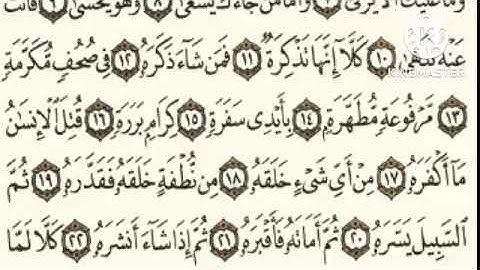 وَمَا عَلَيْكَ أَلَّا يَزَّكَّىٰ ٧ وَأَمَّا مَن جَآءَكَ يَسْعَىٰ ٨ وَهُوَ يَخْشَىٰ ٩ فَأَنتَ
عَنْهُ تَلَهَّىٰ ١٠ كَلَّآ إِنَّهَا تَذْكِرَةٌ ١١ فَمَن شَآءَ ذَكَرَهُۥ ١٢ فِى صُحُفٍ مُّكَرَّمَةٍ
KINEMASTER
١٣ مَّرْفُوعَةٍ مُّطَهَّرَةٍۭ ١٤ بِأَيْدِى سَفَرَةٍ ١٥ كِرَامٍۭ بَرَرَةٍ ١٦ قُتِلَ ٱلْإِنسَٰنُ
مَآ أَكْفَرَهُۥ ١٧ مِنْ أَىِّ شَىْءٍ خَلَقَهُۥ ١٨ مِن نُّطْفَةٍ خَلَقَهُۥ فَقَدَّرَهُۥ ١٩ ثُمَّ
ٱلسَّبِيلَ يَسَّرَهُۥ ٢٠ ثُمَّ أَمَاتَهُۥ فَأَقْبَرَهُۥ ٢١ ثُمَّ إِذَا شَآءَ أَنشَرَهُۥ ٢٢ كَلَّا لَمَّا